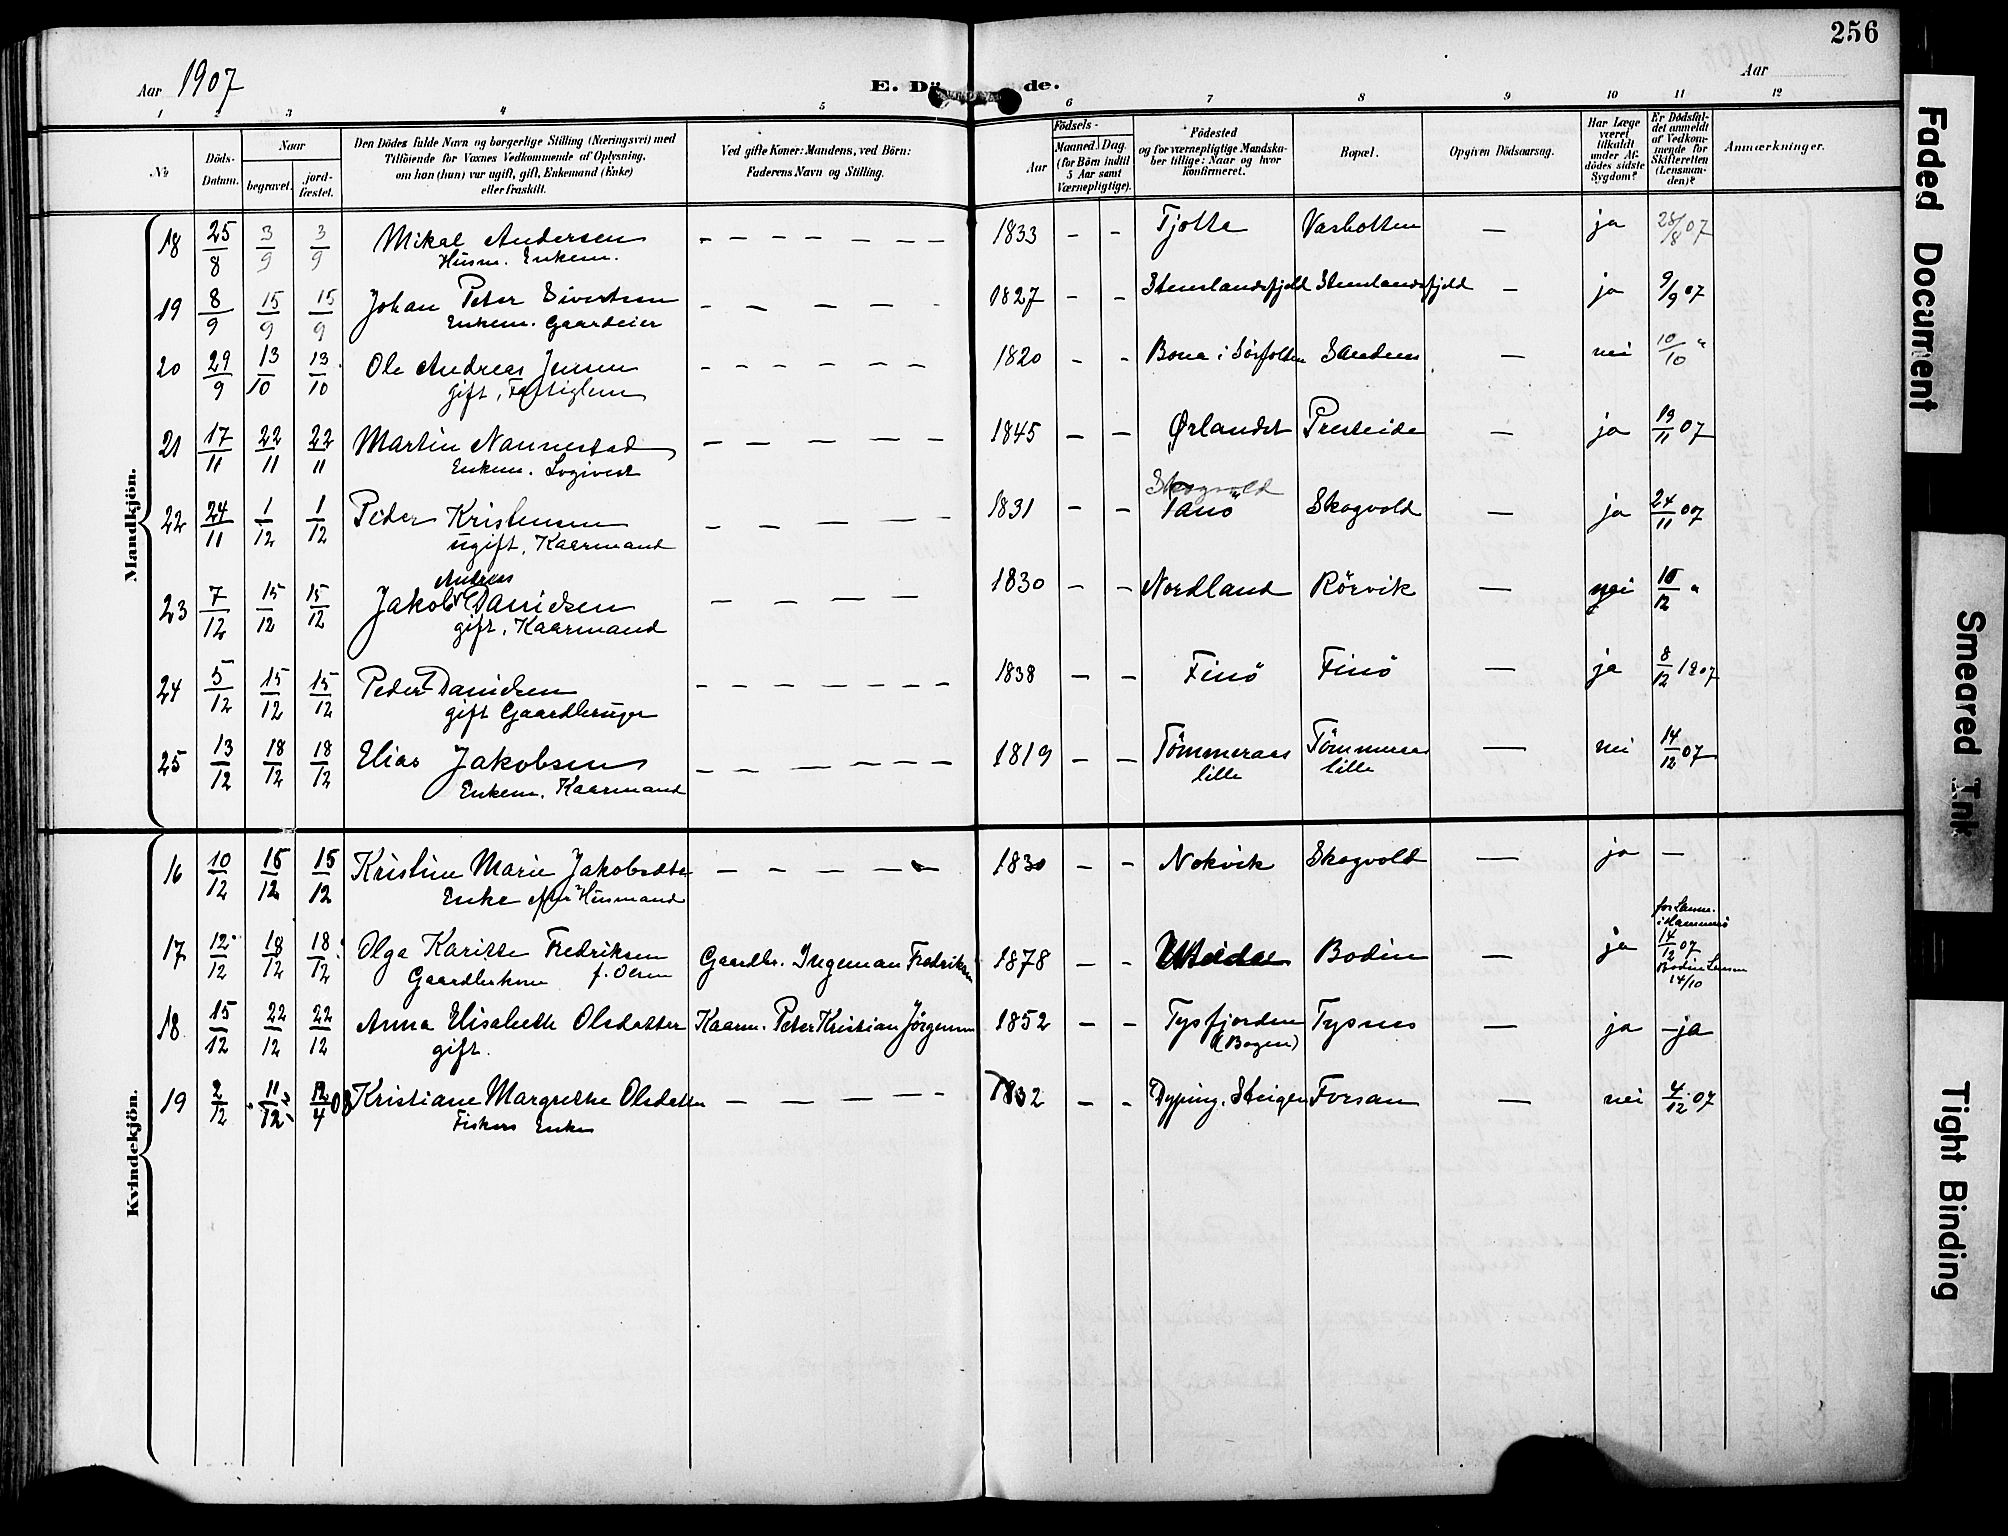 256
Aar 1907
E. Dö de.
Aar
1 2 3 4 5 6 7 8 9 10 11 12
No
Döds-Datum.
Naar
begravet.
jord-fæstet.
Den Dödes fulde Navn og borgerlige Stilling (Næringsvei) med
Tilföiende for Voxnes Vedkommende af Oplysning,
om han (hun) var ugift, gift, Enkemand (Enke)
eller fraskilt.
Ved gifte Koner: Mandens, ved Börn:
Faderens Navn og Stilling.
Födsels-
Aar
Maaned. Dag.
(for Börn indtil
5 Aar samt
Værnepligtige).
Födested
og for værnepligtige Mandska-
ber tillige: Naar og hvor
konfirmeret.
Bopæl.
Opgiven Dödsaarsag.
Har Læge
været
tilkaldt
under Af-
dödes sidste
Sygdom?
Er Dödsfal-
det anmeldt
af Vedkom-
mende for
Skifteretten
(Lensman-
den)?
Anmærkninger.
Mandkjön.
18 25/8 3/9 3/9 Mikal Andersen — — — — — — 1833 – – Tjotta Vasbotten — ja 28/8 07
Husm. Enkem.
19 8/9 15/9 15/9 Johan Peter Sivertsen — — — — — 1827 – – Stenslandsfjeld Stenslandsfjeld — ja 9/9 07
Enkem. Gaardeier
20 29/9 13/10 13/10 Ole Andreas Jensen — — — — — — 1820 – – Bona i Sörfolden — nei 10/10 "
gift,
21 17/11 22/11 22/11 Martin Nannestad — — — — — 1845 – – Ørlandet Presteide — ja 19/11 07
Enkem. Logivert
22 24/11 1/12 1/12 Peder Kristensen — — — — — 1831 – – Skogvold Skogvold — ja 24/11 07
ugift, Kaarmand
Andreas
23 7/12 15/12 15/12 Jakob Danielsen — — — — 1830 – – Nordland Rörvik — nei 10/12 "
gift, Kaarmand
24 5/12 15/12 15/12 Peder Danielsen — — — — — — 1838 – – Finö Finö — ja 8/12 1907
gift Gaardbruger
25 13/12 18/12 18/12 Elias Jakobsen — — — — — — 1819 – – Tömmeraas Tömmeraas — nei 14/12 07
Enkem. Kaarmand lille lille
Kvindekjön.
16 10/12 15/12 15/12 Kristine Marie Jakobsdtr — — — — — 1830 – – Nokvik Skogvold — ja —
Enke efter Husmand
17 12/12 18/12 18/12 Olga Karitte Fredriksen Gaardbr. Ingeman Fredriksen 1878 – – Bodin — ja for Lensm.
i Hammerö
14/12 07
Bodin Lensm
14/10
Gaardbrkone f. Olsen
18 15/12 22/12 22/12 Anna Elisabeth Olsdatter Kaarm. Peter Kristian Jörgensen 1852 – – Tysfjorden Tysnes — ja – ja
gift. (Bogen)
19 2/12 11/12 12/4 08 Kristiane Margrethe Olsdatter — — — — — 1832 – – Dyping, Steigen Forsan — nei 4/12 07
Fiskers Enke
Faded Document
Smeared Ink
Tight Binding